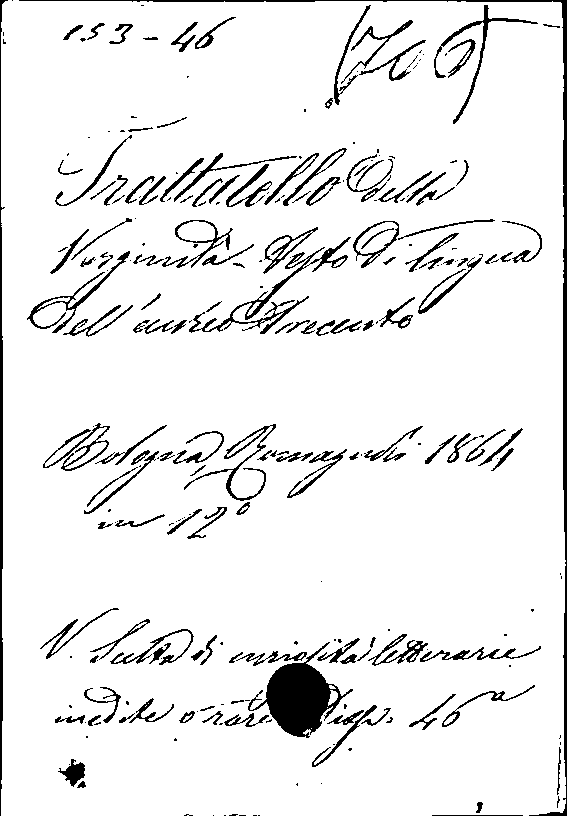 153-46
(706)
Trattatello della
Verginità - Testo di lingua
dell'aureo Trecento
Bologna, Romagnoli 1864
in 12º
V. Scelta di curiosità letterarie
inedite o rare Disp. 46ª